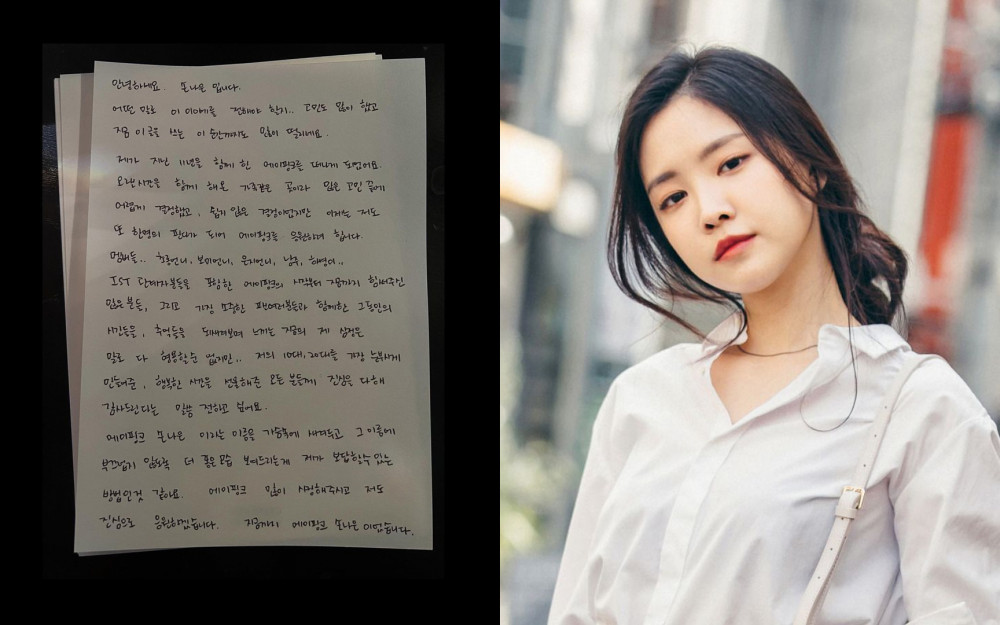 안녕하세요. 손나은 입니다.
어떤 말로 이 이야기를 전해야 할지.. 고민도 많이 했고
지금 이 글을 쓰는 이 순간까지도 많이 떨리네요.
제가 지난 11년을 함께 한 에이핑크를 떠나게 되었어요.
오랜시간을 함께 해온 가족같은 곳이라 많은 고민 끝에
어렵게 결정했고, 쉽지 않은 결정이었지만 이제는 저도
또 한명의 판다가 되어 에이핑크를 응원하려 합니다.
멤버들.. 초롱언니, 보미언니, 은지언니, 남주, 하영이..
IST 관계자분들을 포함한 에이핑크의 시작부터 지금까지 함께해주신
많은 분들, 그리고 가장 소중한 팬여러분들과 함께한 그동안의
시간들을, 추억들을 되새겨보며 느끼는 지금의 제 심정은
말로 다 형용할순 없지만.. 저의 10대, 20대를 가장 눈부시게
만들어준, 행복한 시간을 선물해준 모든 분들께 진심을 다해
감사드린다는 말씀 전하고 싶어요.
에이핑크 손나은 이라는 이름을 가슴속에 새겨두고, 그 이름에
부끄럽지 않도록 더 좋은 모습 보여드리는게 제가 보답할수 있는
방법인것 같아요. 에이핑크 많이 사랑해주시고 저도
진심으로 응원하겠습니다. 지금까지 에이핑크 손나은 이었습니다.